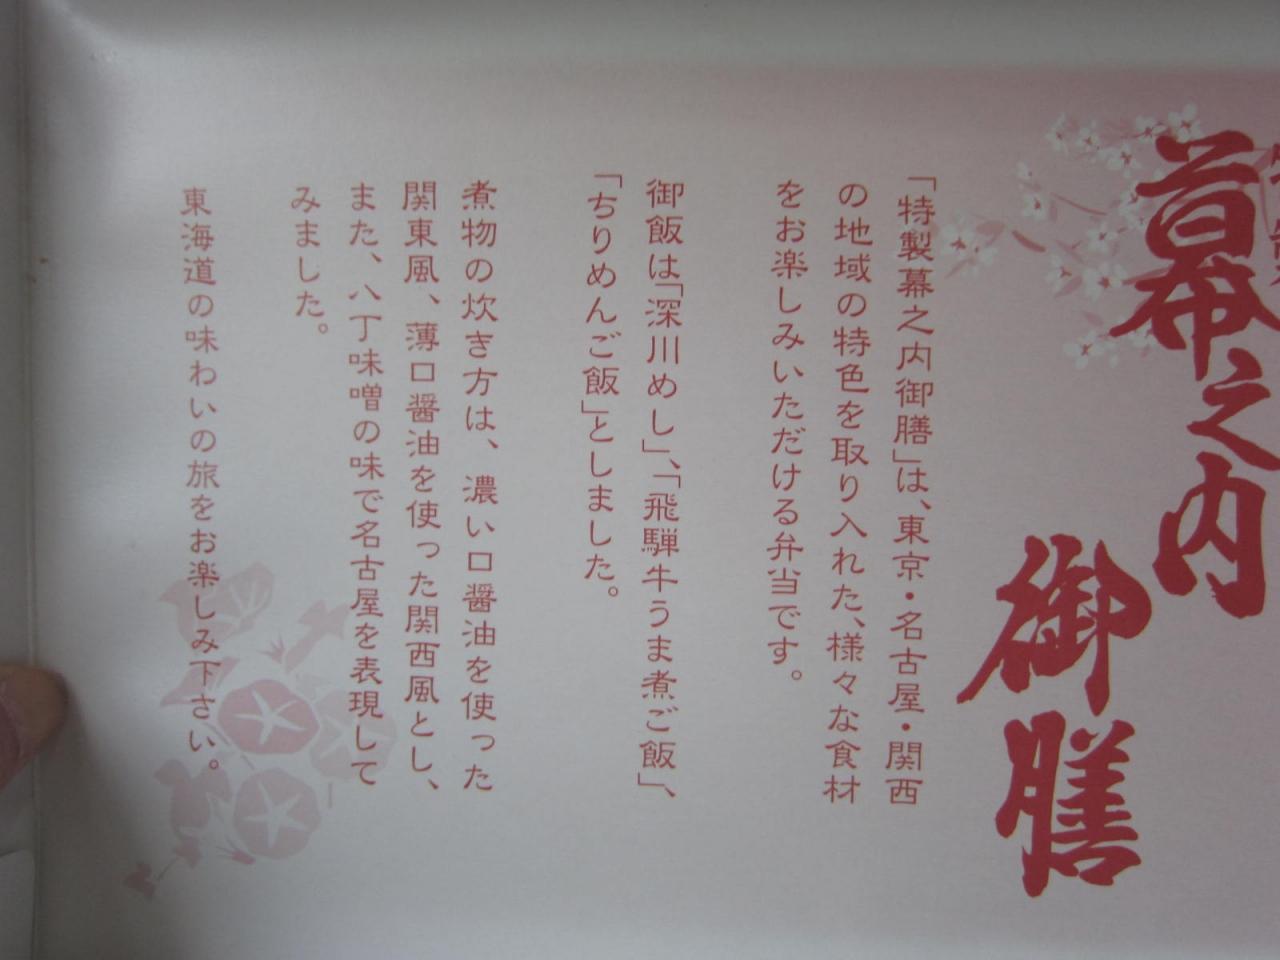 幕之内
御膳
「特製幕之内御膳」は、東京・名古屋・関西
の地域の特色を取り入れた、様々な食材
をお楽しみいただける弁当です。
御飯は「深川めし」、「飛騨牛うま煮ご飯」、
「ちりめんご飯」としました。
煮物の炊き方は、濃い口醤油を使った
関東風、薄口醤油を使った関西風とし、
また、八丁味噌の味で名古屋を表現して
みました。
東海道の味わいの旅をお楽しみ下さい。